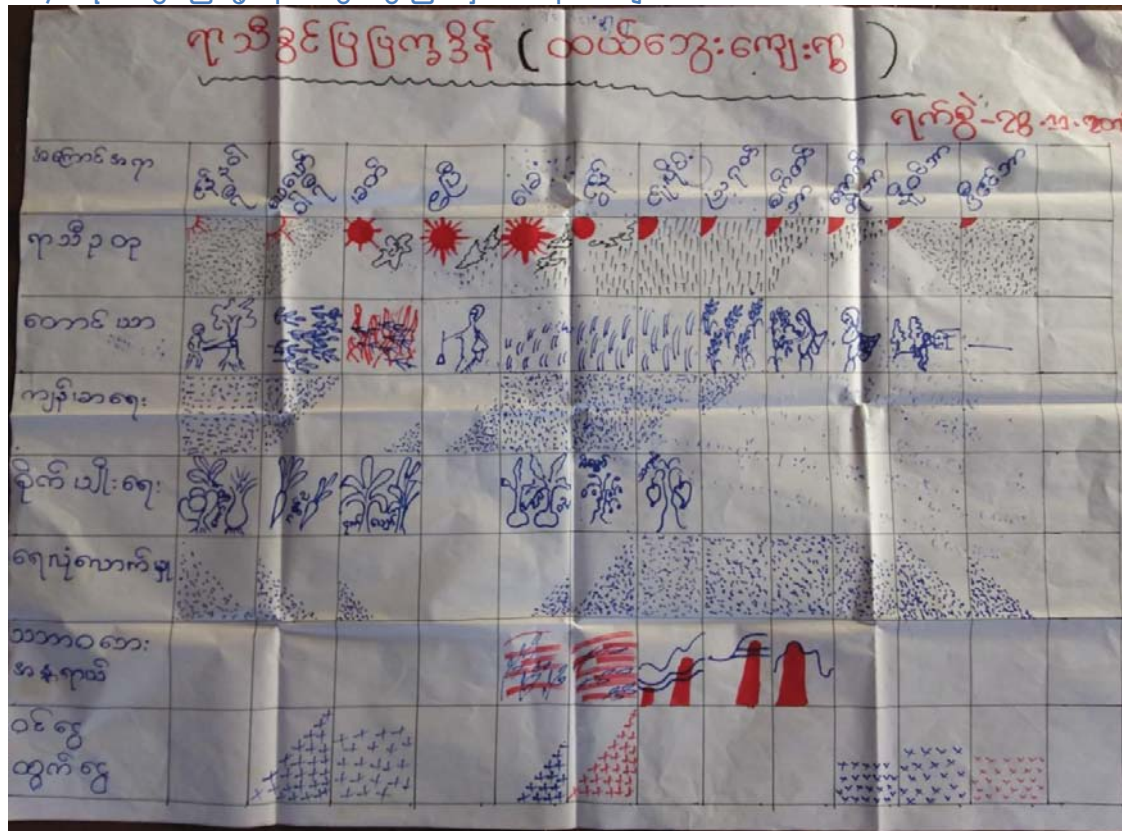 ရာသီခွင်ပြပြက္ခဒိန် ( ထယ်ဘွေးကျေးရွာ )
ရက်စွဲ-28-11-201
အကြောင်အရာ ဇန်နဝါရီ ဖေဖော်ဝါရီ မတ် ဧပြီ မေ ဇွန် ဇူလိုင် ဩဂုတ် စက်တင်ဘာ အောက်တိုဘာ နိုဝင်ဘာ ဒီဇင်ဘာ
ရာသီဥတု
တောင်ယာ
ကျန်းမာရေး
စိုက်ပျိုးရေး
ရေလုံလောက်မှု
သဘာဝဘေး
အန္တရာယ်
ဝင်ငွေ
ထွက်ငွေ